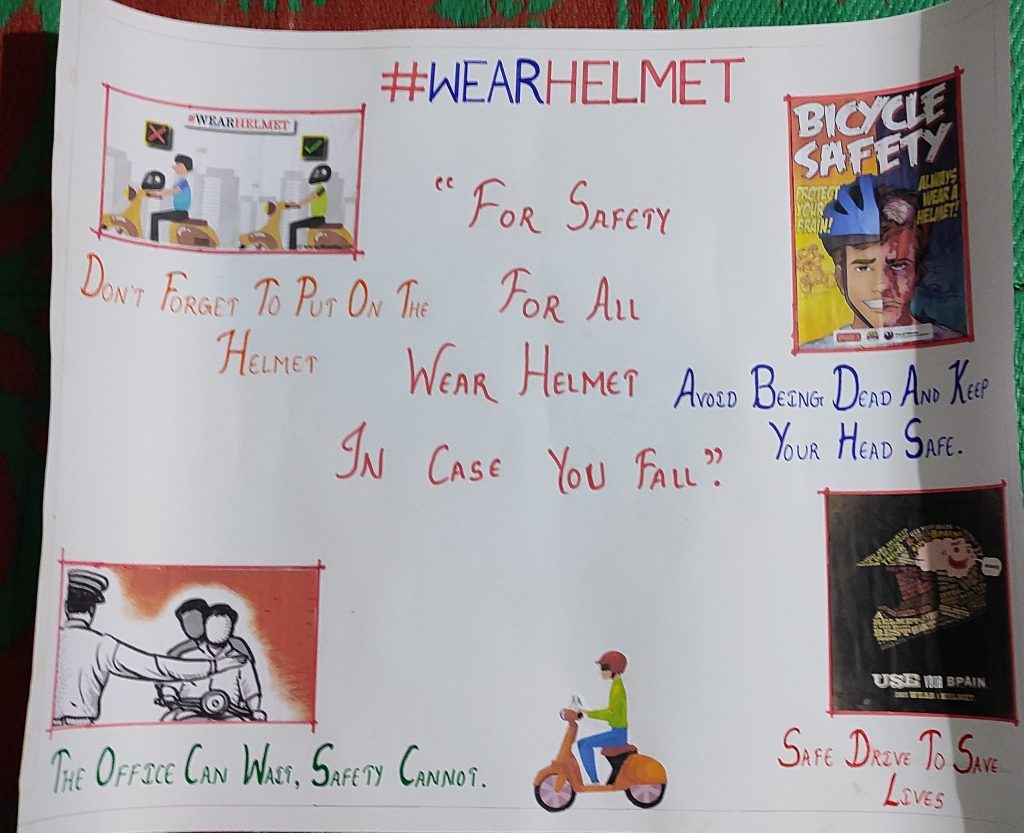 #WEARHELMET
#WEARHELMET
BICYCLE
SAFETY
PROTECT
YOUR
BRAIN!
ALWAYS
WEAR A
HELMET!
"FOR SAFETY
FOR ALL
WEAR HELMET
IN CASE YOU FALL".
DON'T FORGET TO PUT ON THE
HELMET
AVOID BEING DEAD AND KEEP
YOUR HEAD SAFE.
A
HELMET
USE YOUR BRAIN
AND WEAR A HELMET.
THE OFFICE CAN WAIT, SAFETY CANNOT.
SAFE DRIVE TO SAVE
LIVES